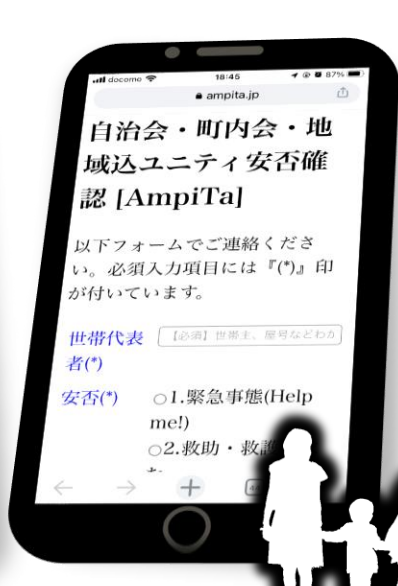 docomo 18:45 87%
ampita.jp
自治会・町内会・地
域込ユニティ安否確
認 [AmpiTa]
以下フォームでご連絡くださ
い。必須入力項目には『(*)』印
が付いています。
世帯代表 【必須】世帯主、屋号などわか
者(*)
安否(*) ○1.緊急事態(Help
me!)
○2.救助・救護